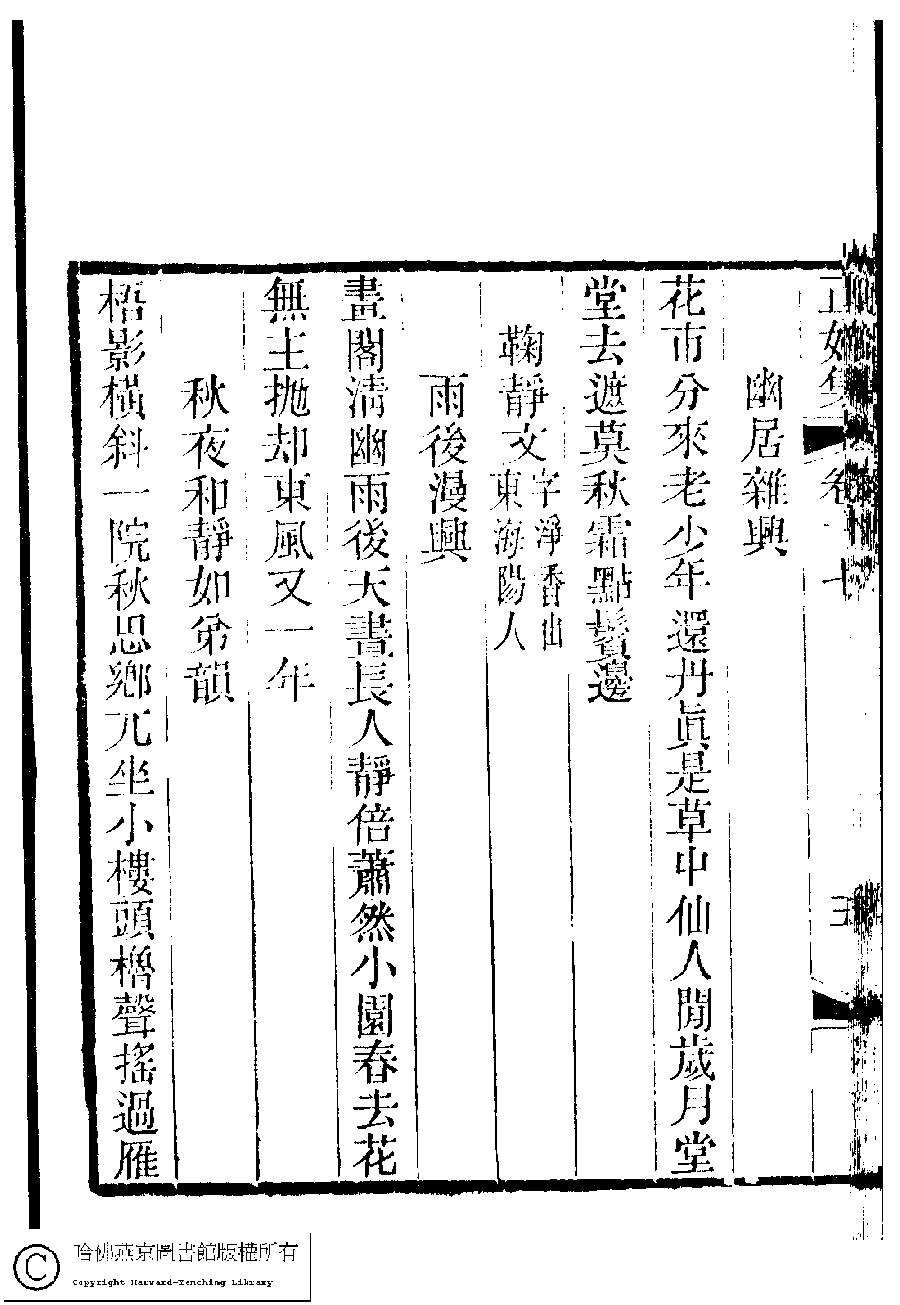 幽居雜興
花市分來老少年還丹眞是草中仙人閒歲月堂
堂去遮莫秋霜點鬢邊
鞠靜文字淨香山東海陽人
雨後漫興
畫閣清幽雨後天晝長人靜倍蕭然小園春去花
無主拋却東風又一年
秋夜和靜如弟韻
梧影橫斜一院秋思鄉兀坐小樓頭櫓聲搖過雁
哈佛燕京圖書館版權所有
Copyright Harvard-Yenching Library